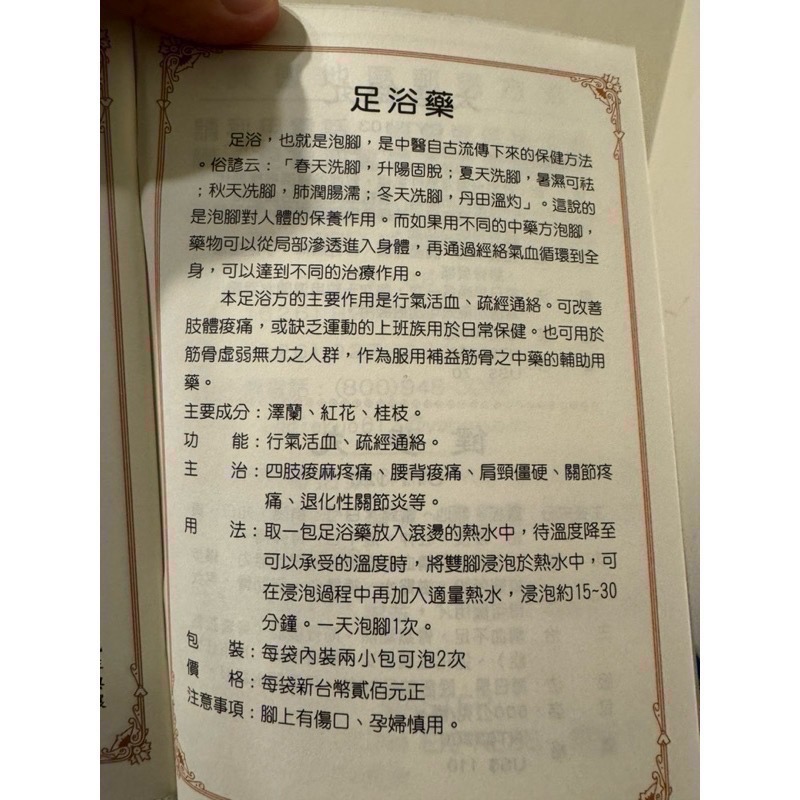 足浴藥
足浴，也就是泡腳，是中醫自古流傳下來的保健方法
。俗諺云：「春天洗腳，升陽固脫；夏天洗腳，暑濕可祛
；秋天洗腳，肺潤腸濡；冬天洗腳，丹田溫灼」。這說的
是泡腳對人體的保養作用。而如果用不同的中藥方泡腳，
藥物可以從局部滲透進入身體，再通過經絡氣血循環到全
身，可以達到不同的治療作用。
本足浴方的主要作用是行氣活血、疏經通絡。可改善
肢體痠痛，或缺乏運動的上班族用於日常保健。也可用於
筋骨虛弱無力之人群，作為服用補益筋骨之中藥的輔助用
藥。
主要成分：澤蘭、紅花、桂枝。
功　能：行氣活血、疏經通絡。
主　治：四肢痠麻疼痛、腰背痠痛、肩頸僵硬、關節疼
痛、退化性關節炎等。
用　法：取一包足浴藥放入滾燙的熱水中，待溫度降至
可以承受的溫度時，將雙腳浸泡於熱水中，可
在浸泡過程中再加入適量熱水，浸泡約15~30
分鐘。一天泡腳1次。
包　裝：每袋內裝兩小包可泡2次
價　格：每袋新台幣貳佰元正
注意事項：腳上有傷口、孕婦慎用。